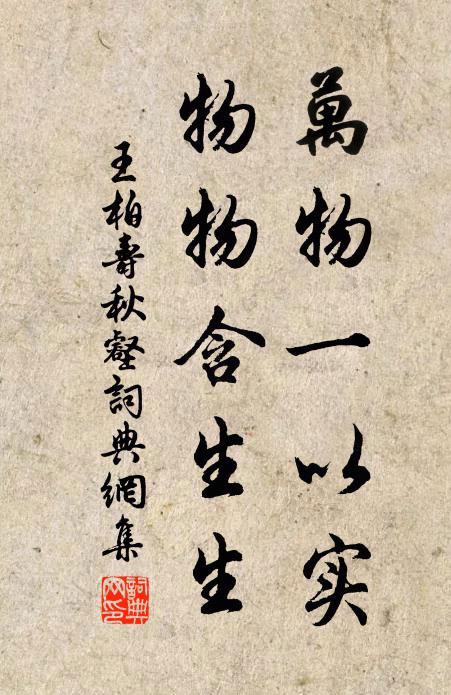 萬物一以实
物物含生生
王柏壽秋壑詞典網集
詞典网印